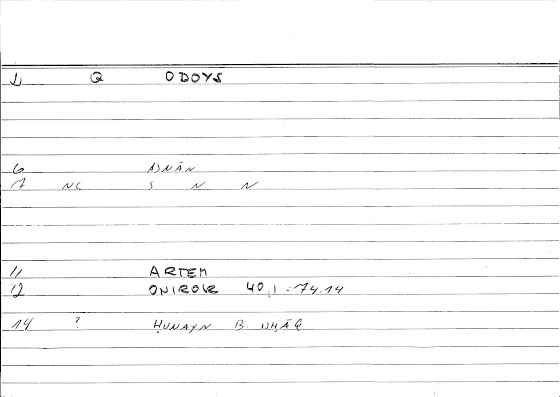 1 Q ODOYS
6 AJNĀN
7 NC S N N
11 ARTEM
12 ONIROKR 40,1 - 74.14
14 ? ḤUNAYN B. ISḤĀQ